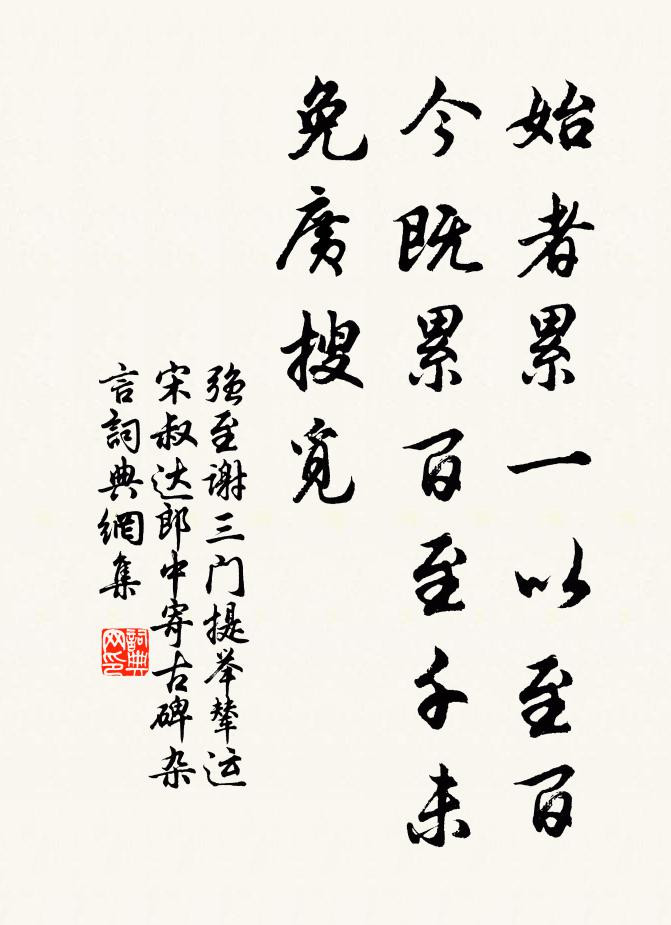 始者累一以至百
今既累百至千未
免廣搜覓
强至谢三门提举辇运
宋叔达郎中寄古碑杂
言詞典網集
詞典
网印